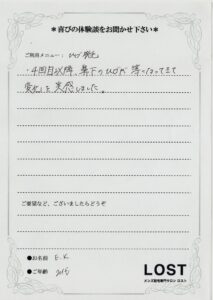 ＊喜びの体験談をお聞かせ下さい＊
ご利用メニュー： ひげ脱毛
・4回目以降、鼻下のひげが薄くなってきて
変化を実感しました。
ご要望など、ございましたらどうぞ
●お名前 E.K
●ご年齢
LOST
メンズ脱毛専門サロン ロスト